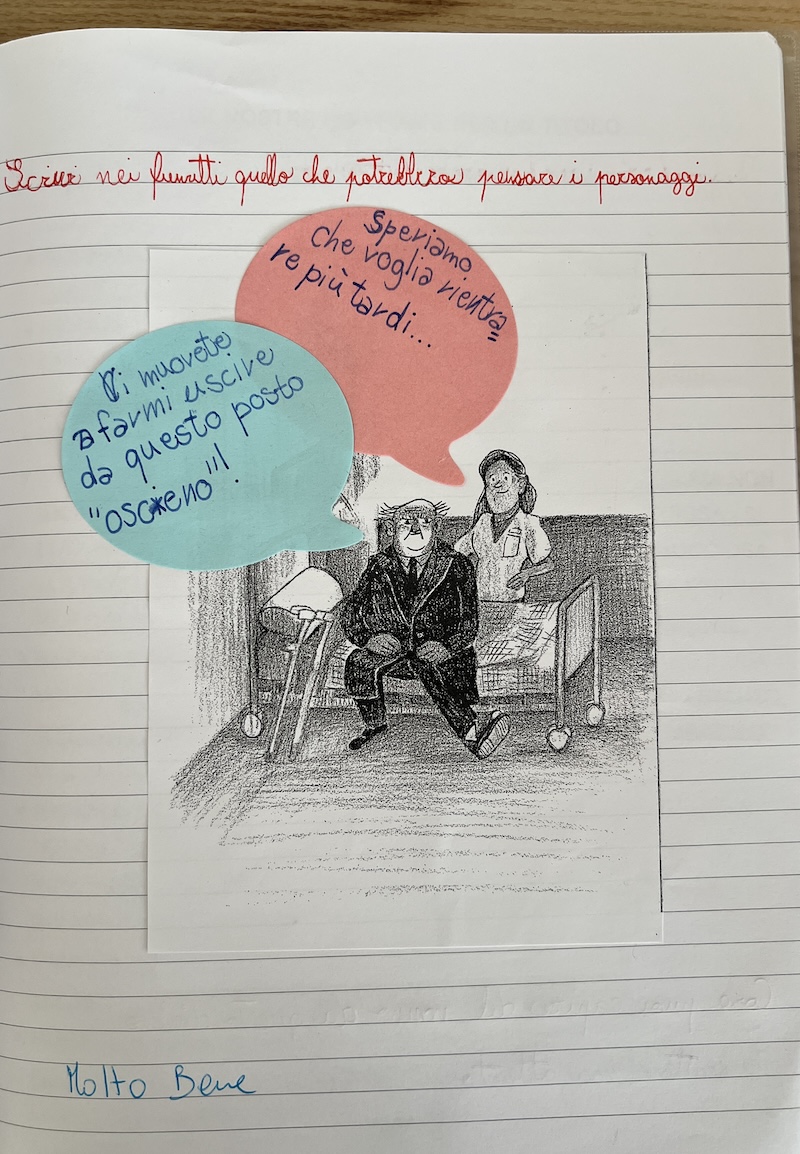 Scrivi nei fumetti quello che potrebbero pensare i personaggi.
Speriamo
che voglia rientra=
re più tardi...
Vi muovete
a farmi uscire
da questo posto
"osceno"!
Molto Bene